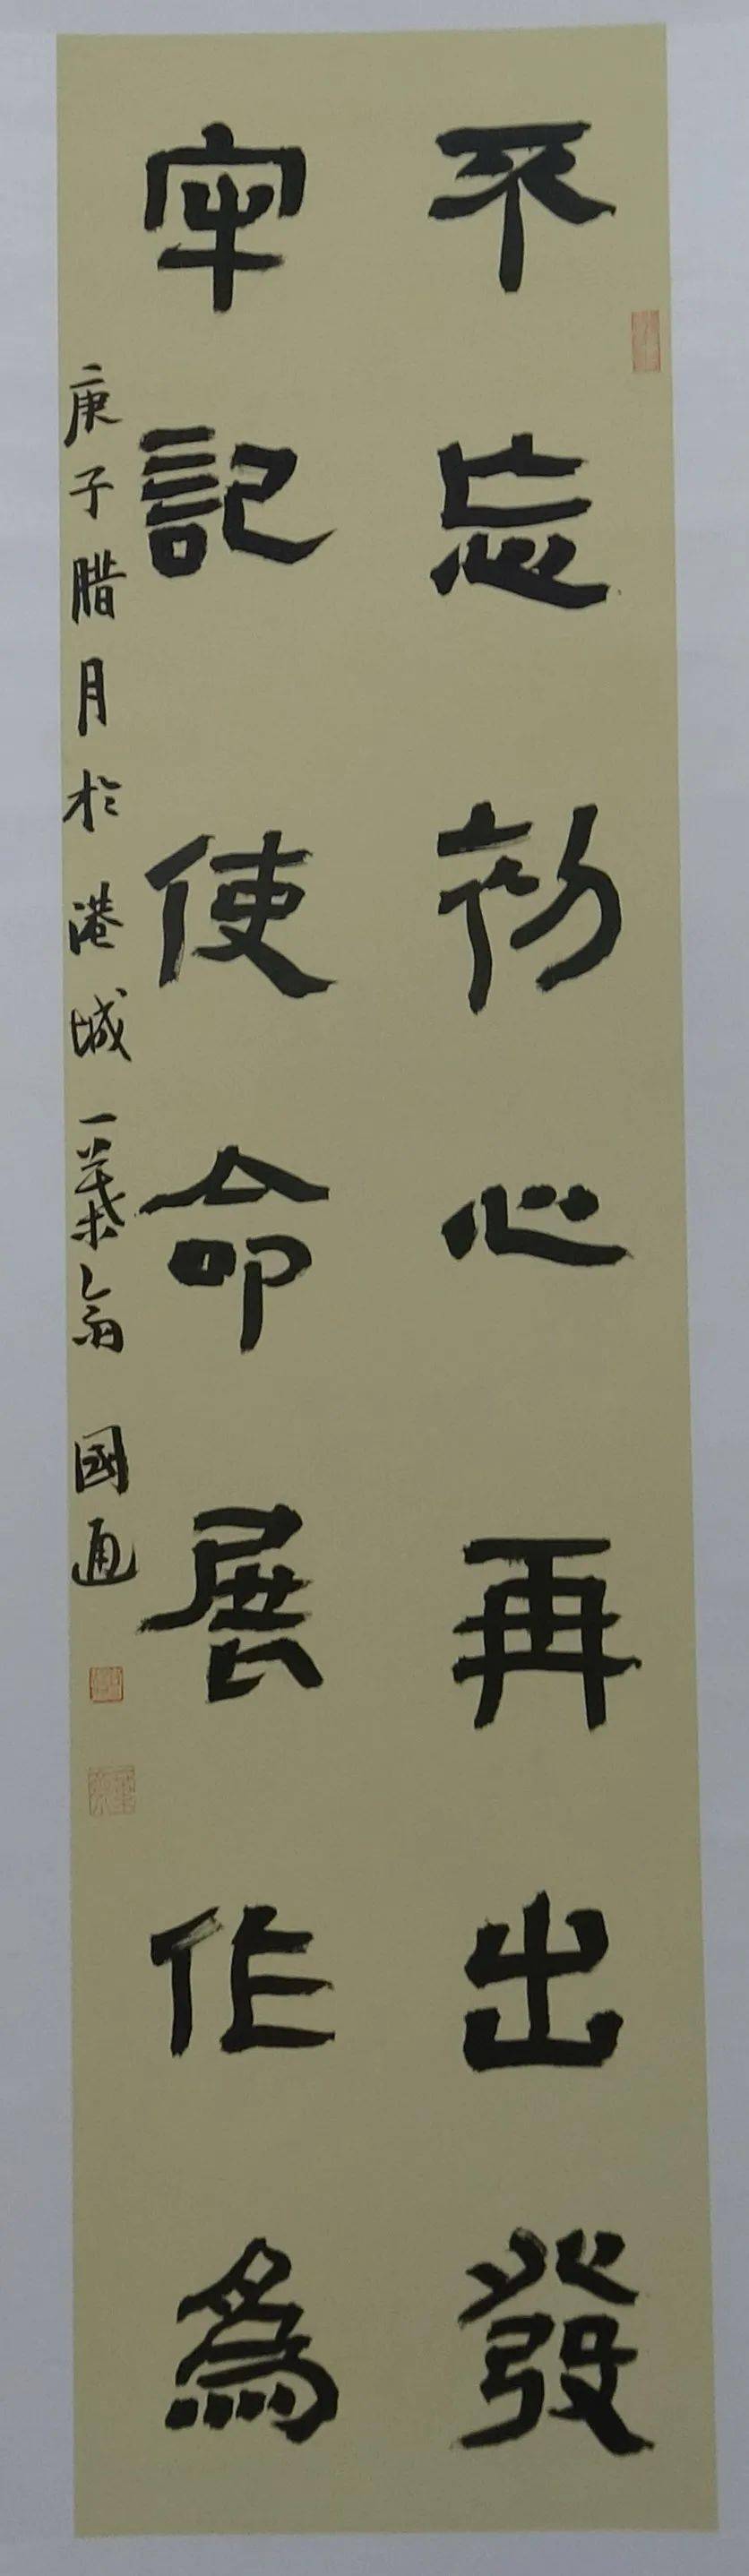 不忘初心再出發
牢記使命展作為
庚子腊月於港城一葉翁 國通